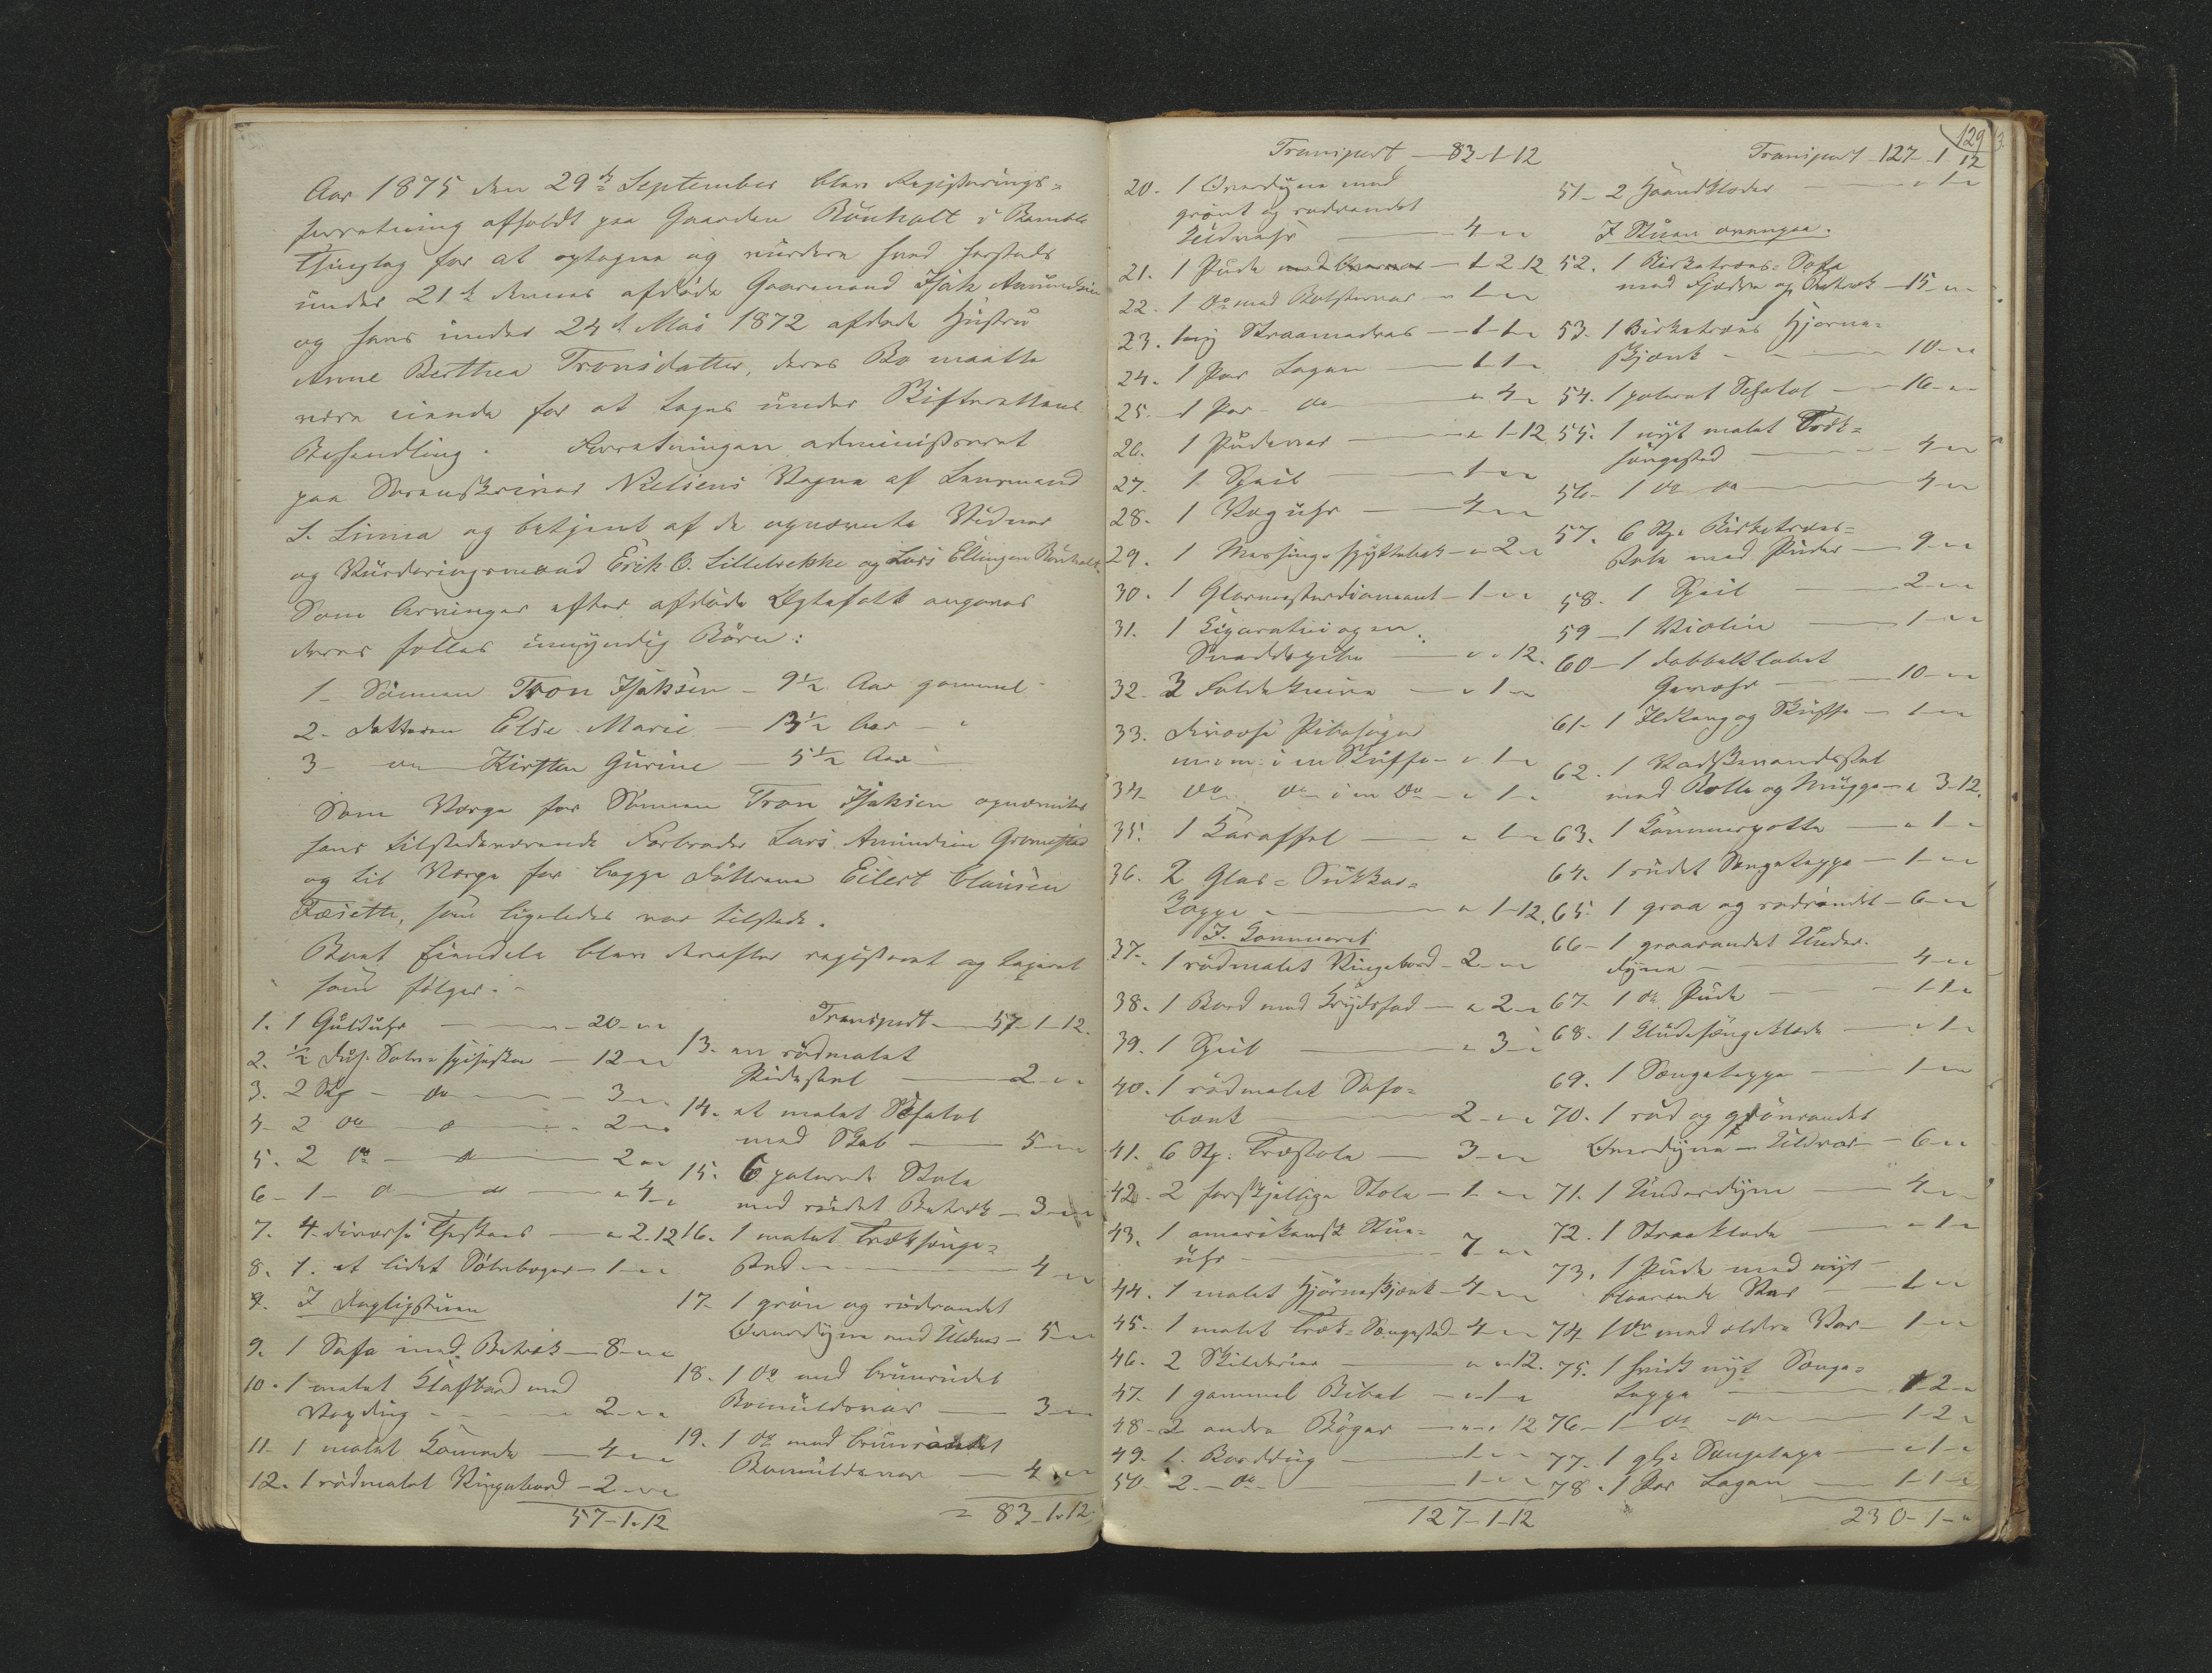 Aar 1875 den 29de September blev Registrerings-
forretning afholdt paa Gaarden Rönholt i Bamble
Thinglag for at optegne og vurdere hvad herstads
under 21de dennes afdöde Gaardmand Isak Amundsen
og hans under 24de Mai 1872 afdöde Hustru
Anne Berthea Tronsdatter, deres Bo maatte
være eiende for at tages under Skifterettens
Behandling. Forretningen administreret
paa Sorenskriver Nielsens Vegne af Lensmand
S. Linna og betjent af de opnævnte Vidner
og Vurderingsmænd Erik O. Lillebrekke og Lars Ellingsen Rönholt.
Som Arvinger efter afdöde Ægtefolk angaves
deres fælles umyndig Börn:
1 - Sönnen Tron Isaksen - 9 1/2 Aar gammel
2 - Datteren Else Marie - 13 1/2 Aar - "
3 - do Kirsten Gurine - 5 1/2 Aar
Som Værge for Sönnen Tron Isaksen opnævntes
hans tilstedeværende Farbroder Lars Amundsen Gromstad
og til Værge for begge Döttrene Eilert Clausen
Fæsette, som ligeledes var tilstede.
Boets Eiendele blev derefter registreret og taxeret
som fölger:
1. 1 Gulduhr - 20 - " "
2. 1/2 Dus. Sölv-spiseskeer - 12 - " "
3. 2 Stk - do - 3 - " "
4 - 2 do - do - 2 - " "
5. 2 do - do - 2 " "
6 - 1 - do - do - " 4 - "
7. 4 diverse Theskeer - " 2. 12
8. 1. et lidet Sölvbæger - 1 - " "
I Dagligstuen
9. 1 Sofa med Betræk - 8 - " "
10. 1 malet Klafbord med
Voxdug - 2 - " "
11 - 1 malet Komode - 4 - " "
12. 1 rödmalet Vingebord - 2 - " "
57 - 1 - 12
Transport - 57 - 1 - 12.
13. en rödmalet
- 2 - " "
14. et malet Chatol
med Skab - 5 - " "
15. 6 polerede Stole
med rudet Betræk - 3 - " "
16. 1 malet Træksenge-
sted - 4 " "
17 - 1 grön og rödrandet
Overdyne med Uldvar - 5 - " "
18. 1 do med brunrudet
Bomuldsvar - 3 - " "
19. 1 do med brunrandet
Bomuldsvar - 4 " "
= 83 - 1 - 12
129
Transport - 83 - 1 - 12
20. 1 Overdyne med
grönt og rödrandet
Uldvahr - 4 - " "
21. 1 Pude - 1 2 12
22. 1 do med Bolstervar - " 1 - "
23. 1 ny Straamadras - 1 - 1 - "
24. 1 Par Lagen - 1 - 1 - "
25. 1 Par do - " 4 - "
26. 1 Pudevar - " 1 - 12
27. 1 Speil - 1 - " "
28. 1 Væguhr - 4 - " "
29. 1 Messings-spyttebak - " 2 - "
30. 1 Glarmesterdiamant - 1 - " "
31. 1 Cigaretui og en
Snaddepibe - " " 12.
32. 3 Foldeknive - " 1 - "
33. Diverse Pibesager
m.m. i en Skuffe - " 1 - "
34 - do do i en do - " 1 - "
35. 1 Karaffel - " 1 - "
36. 2 Glas-Sukker-
Kopper - " 1 - 12.
I. Kammeret
37 - 1 rödmalet Vingebord - 2 - " "
38. 1 Bord med Krydsfod - " 2 - "
39. 1 Speil - " 3 - "
40. 1 rödmalet Sofa-
bænk - 2 - " "
41. 6 Stk. Træstole - 3 - " "
42. 2 forskjellige Stole - 1 - " "
43. 1 amerikansk Stue-
uhr - 7 - " "
44. 1 malet Hjörneskjænk - 4 - " "
45 - 1 malet Træk-Sengested - 4 - " "
46. 2 Skilderier - " " 12.
47. 1 gammel Bibel - " 1 - "
48 - 2 andre Böger - " " 12
49. 1. Borddug - 1 - " "
50 2. - do - 1 - " "
127 - 1 - 12
Transport - 127 - 1 12
51 - 2 Haandklæder - " 1 - "
I Stuen ovenpaa.
52. 1 Birketræes-Sofa
med Fjedre og Betræk - 15 - " "
53. 1 Birketræes Hjörne-
skjænk - 10 - " "
54. 1 poleret Chatol - 16 - " "
55. 1 nyt malet Træk-
sengested - 4 - " "
56 - 1 do do - 4 - " "
57. 6 Stk. Birketræes-
Stole med Puder - 9 - " "
58. 1 Speil - 2 - " "
59 - 1 Violin - 1 - " "
60 - 1 dobbeltlöbet
Geværhr - 10 - " "
61 - 1 Ildtang og Skuffe - 1 - " "
62. 1 Vadskevandsstel
med Bolle og Mugge - " 3 - 12.
63. 1 Kammerpotte - " 1 - "
64. 1 rudet Sengeteppe - 1 - " "
65. 1 graa og rödrandet - 6 - " "
66 - 1 graarandet Under-
dyne - 4 - " "
67 - 1 do Pude - 1 - 1 - "
68. 1 Kludesengeklæde - " 1 - "
69. 1 Sengeteppe - 1 - " "
70. 1 röd og grönrandet
Overdyne - Uldvar - 6 - " "
71. 1 Underdyne - 4 - " "
72. 1 Straaklæde - " 1 - "
73. 1 Pude med nyt
blaarandet Var - 1 - " "
74 1 do med ældre Var - 1 - " "
75. 1 hvidt nyt Senge-
teppe - 1 - 2 - "
76 - 1 - do - do - 1 - 2 - "
77. 1 gl. Sengeteppe - " 1 - "
78. 1 Par Lagen - 1 - 1 - "
230 - 1 - "